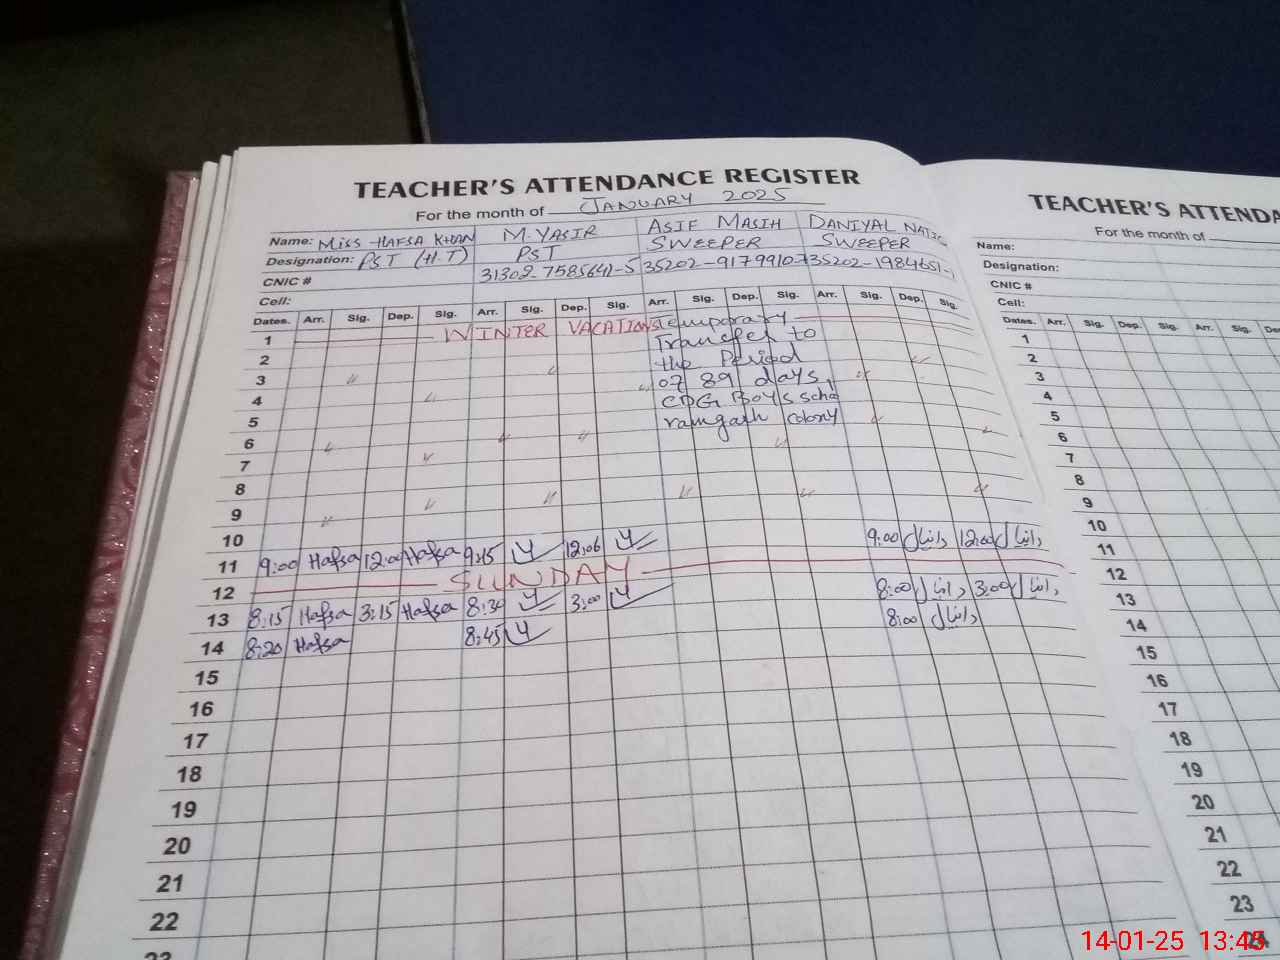 TEACHER'S ATTENDANCE REGISTER
For the month of JANUARY 2025
Name: MISS HAFSA KHAN M. YASIR ASIF MASIH DANIYAL
Designation: PST (H.T) PST SWEEPER SWEEPER
CNIC # 31302-7585641-5 35202-9179910-7 35202-1984651-
Cell:
Dates. Arr. Sig. Dep. Sig. Arr. Sig. Dep. Sig. Arr. Sig. Dep. Sig. Arr. Sig. Dep. Sig.
1 WINTER VACATIONS Temporary
2 Transfer to
3 the Period
4 of 89 days,
5 CDG Boys scho
6 ramgarh colony
7
8
9
10
11 9:00 Hafsa 12:00 Hafsa 9:15 12:06 9:00 دانیال 12:00 دانیال
12 SUNDAY
13 8:15 Hafsa 3:15 Hafsa 8:30 3:00 8:00 دانیال 3:00 دانیال
14 8:20 Hafsa 8:45 8:00 دانیال
15
16
17
18
19
20
21
22
23
TEACHER'S ATTENDA
For the month of
Name:
Designation:
CNIC #
Cell:
Dates. Arr. Sig. Dep. Sig. Arr. Sig. Dep.
1
2
3
4
5
6
7
8
9
10
11
12
13
14
15
16
17
18
19
20
21
22
23
24
14-01-25 13:45